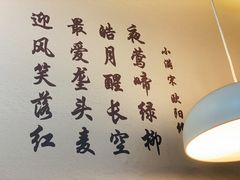 小满 宋 欧阳
夜莺啼绿柳
皓月醒长空
最爱垄头麦
迎风笑落红